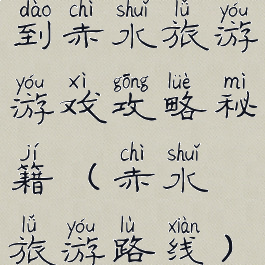 dào chì shuǐ lǚ yóu
到赤水旅游
yóu xì gōng lüè mì
游戏攻略秘
jí chì shuǐ
籍（赤水
lǚ yóu lù xiàn
旅游路线）